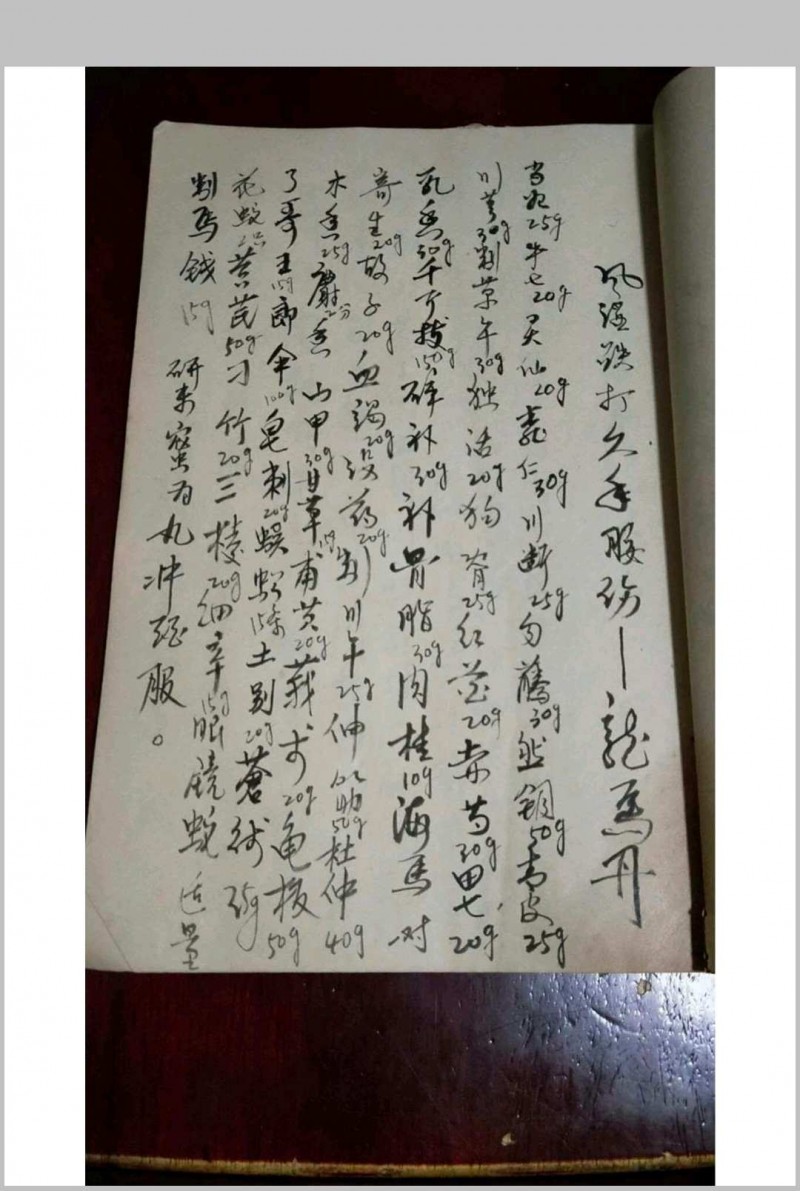 风湿跌打久年股伤—龙马丹
当归25g牛七20g灵仙20g 仁30g川断25g勾藤30g然铜50g青皮25g
川芎30g制草午30g独活20g狗脊25g红花20g赤芍30g田七20g
乳香30g千斤拔150g碎补30g补骨脂30g肉桂10g海马一对
寄生20g故子20g血竭20g没药20g制川午25g伸筋50g杜仲40g
木香25g麝香2分山甲30g甘草15g黄20g莪术20g龟板50g
了哥王15g郎伞100g皂刺20g蜈蚣15条土别20g苍術
花蛇 黄芪50g刁竹20g三棱20g细辛15g眼镜蛇适量
制马钱15g 研末蜜为丸冲酒服。